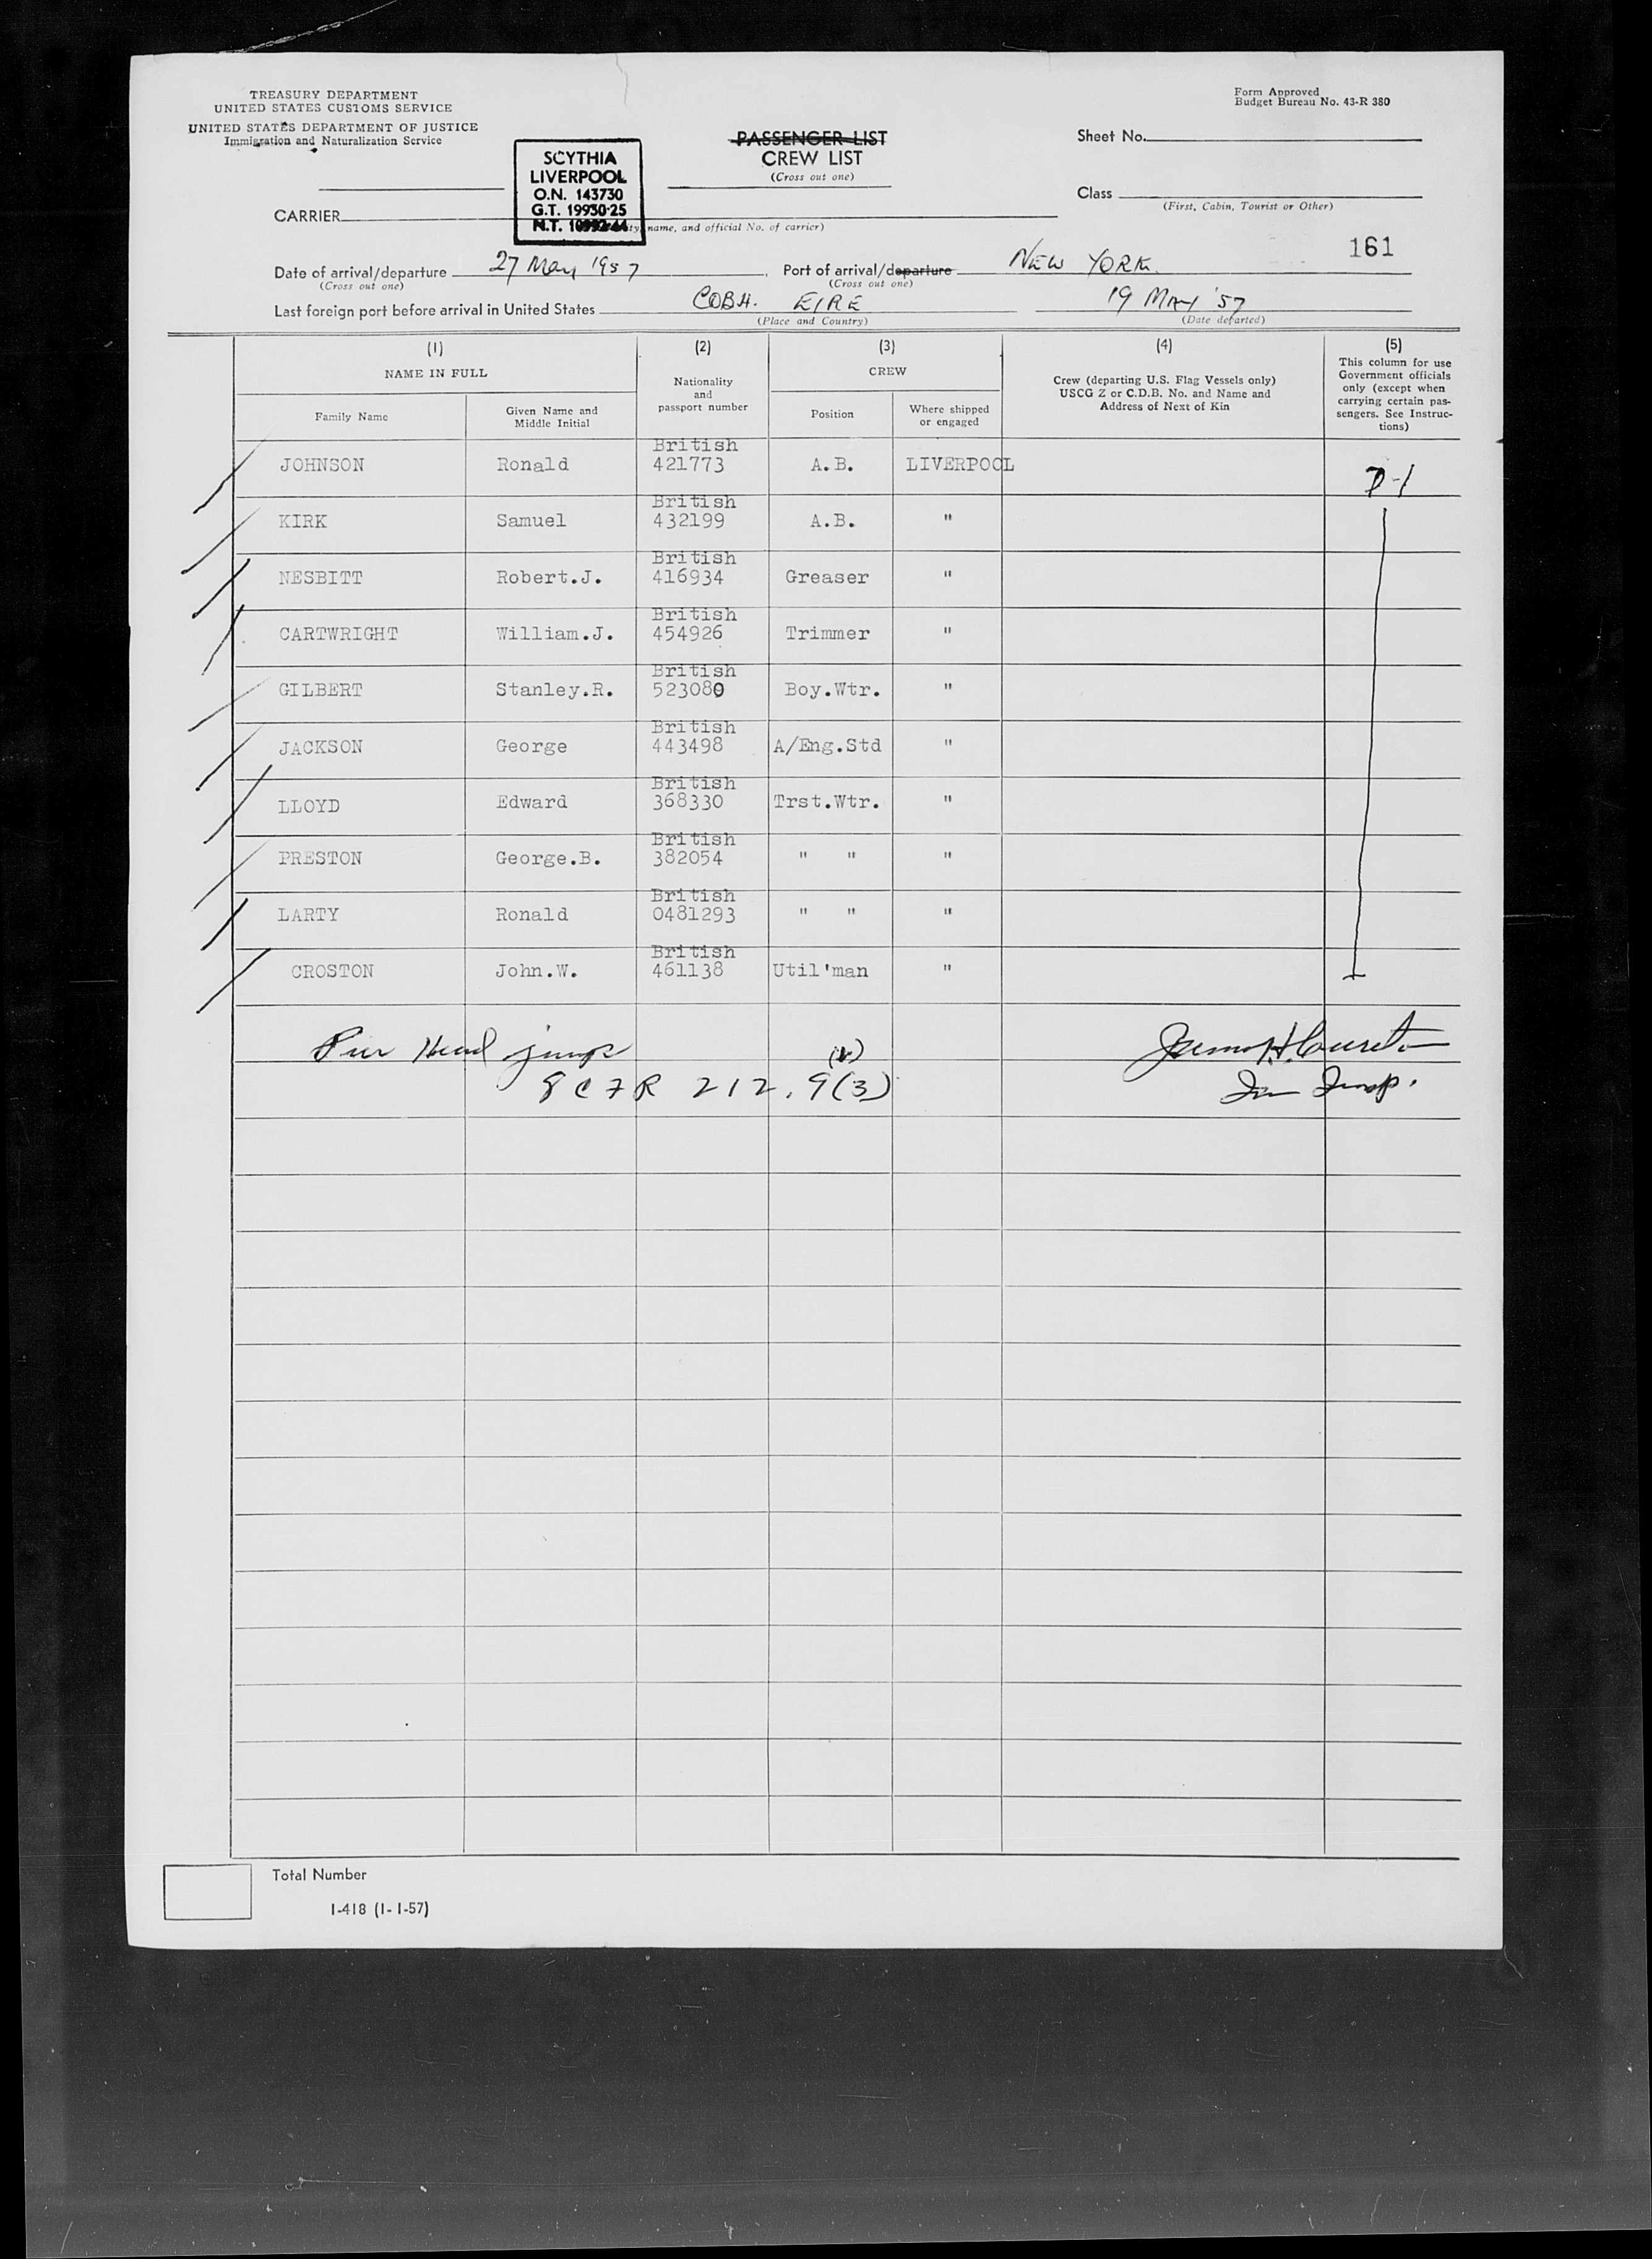 TREASURY DEPARTMENT
UNITED STATES CUSTOMS SERVICE
UNITED STATES DEPARTMENT OF JUSTICE
Immigration and Naturalization Service
Form Approved
Budget Bureau No. 43-R 380
PASSENGER LIST
CREW LIST
(Cross out one)
Sheet No.
Class
(First, Cabin, Tourist or Other)
SCYTHIA
LIVERPOOL
O.N. 143730
G.T. 19930·25
N.T. 10992·44
CARRIER
name, and official No. of carrier)
161
Date of arrival/departure 27 May 1957 Port of arrival/departure NEW YORK.
(Cross out one) (Cross out one)
Last foreign port before arrival in United States COBH. EIRE 19 MAY '57
(Place and Country) (Date departed)
(1) (2) (3) (4) (5)
NAME IN FULL
Family Name
Given Name and Middle Initial
Nationality and passport number
CREW
Position
Where shipped or engaged
Crew (departing U.S. Flag Vessels only)
USCG Z or C.D.B. No. and Name and
Address of Next of Kin
This column for use
Government officials
only (except when
carrying certain pas-
sengers. See Instruc-
tions)
British
JOHNSON Ronald 421773 A.B. LIVERPOOL D-1
British
KIRK Samuel 432199 A.B. "
British
NESBITT Robert.J. 416934 Greaser "
British
CARTWRIGHT William.J. 454926 Trimmer "
British
GILBERT Stanley.R. 523080 Boy.Wtr. "
British
JACKSON George 443498 A/Eng.Std "
British
LLOYD Edward 368330 Trst.Wtr. "
British
PRESTON George.B. 382054 " " "
British
LARTY Ronald 0481293 " " "
British
CROSTON John.W. 461138 Util'man "
Pier Head jump
8 CFR 212.9(3)
Im Insp.
Total Number
I-418 (1-1-57)